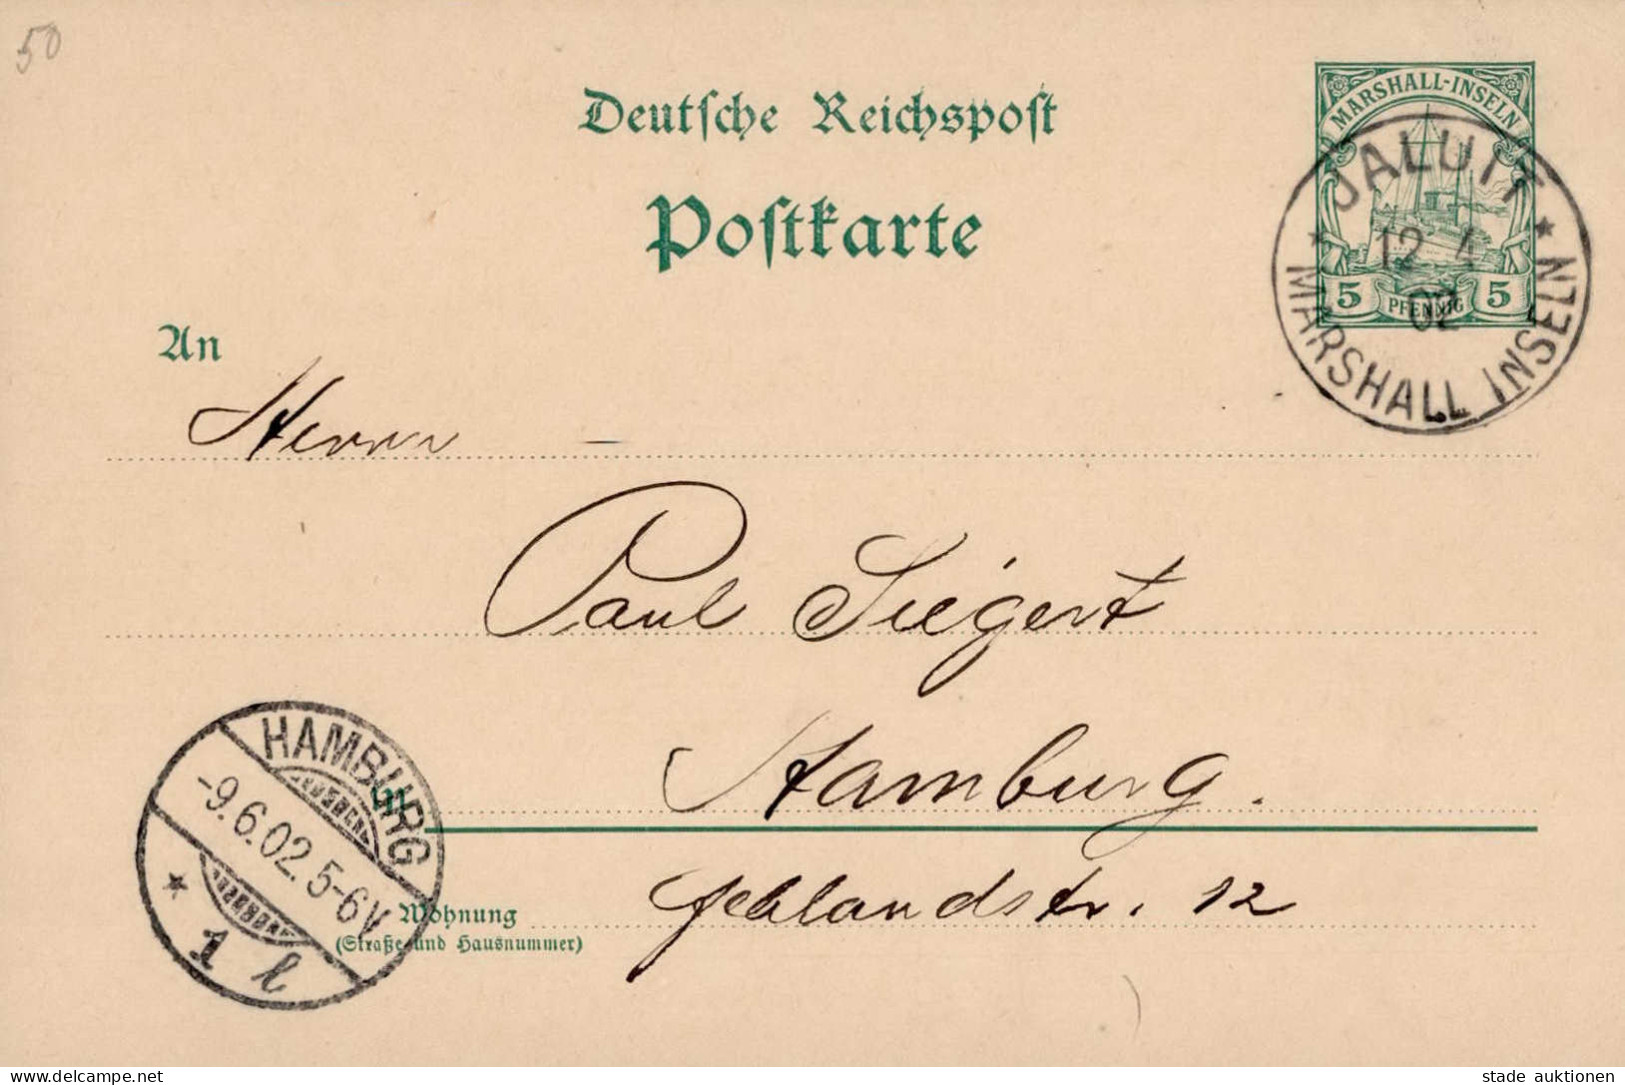 50
Deutſche Reichspoſt
Poſtkarte
MARSHALL-INSELN
5 PFENNIG 5
JALUIT
12 4
02
MARSHALL INSELN
An
Herrn
Paul Siegert
in
Hamburg.
Wohnung
(Straße und Hausnummer)
Jehlandstr. 12
HAMBURG
-9.6.02.5-6V
* 1 l
© Delcampe - The Marketplace for Collectors
stade auktionen